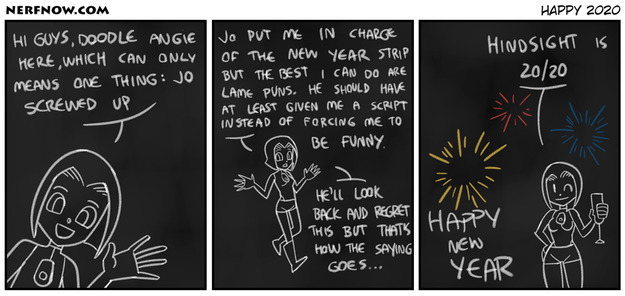 NERFNOW.COM
HAPPY 2020
HI GUYS, DOODLE ANGIE
HERE, WHICH CAN ONLY
MEANS ONE THING: JO
SCREWED UP
JO PUT ME IN CHARGE
OF THE NEW YEAR STRIP
BUT THE BEST I CAN DO ARE
LAME PUNS. HE SHOULD HAVE
AT LEAST GIVEN ME A SCRIPT
INSTEAD OF FORCING ME TO
BE FUNNY.
HE'LL LOOK
BACK AND REGRET
THIS BUT THAT'S
HOW THE SAYING
GOES...
HINDSIGHT IS
20/20
HAPPY
NEW
YEAR